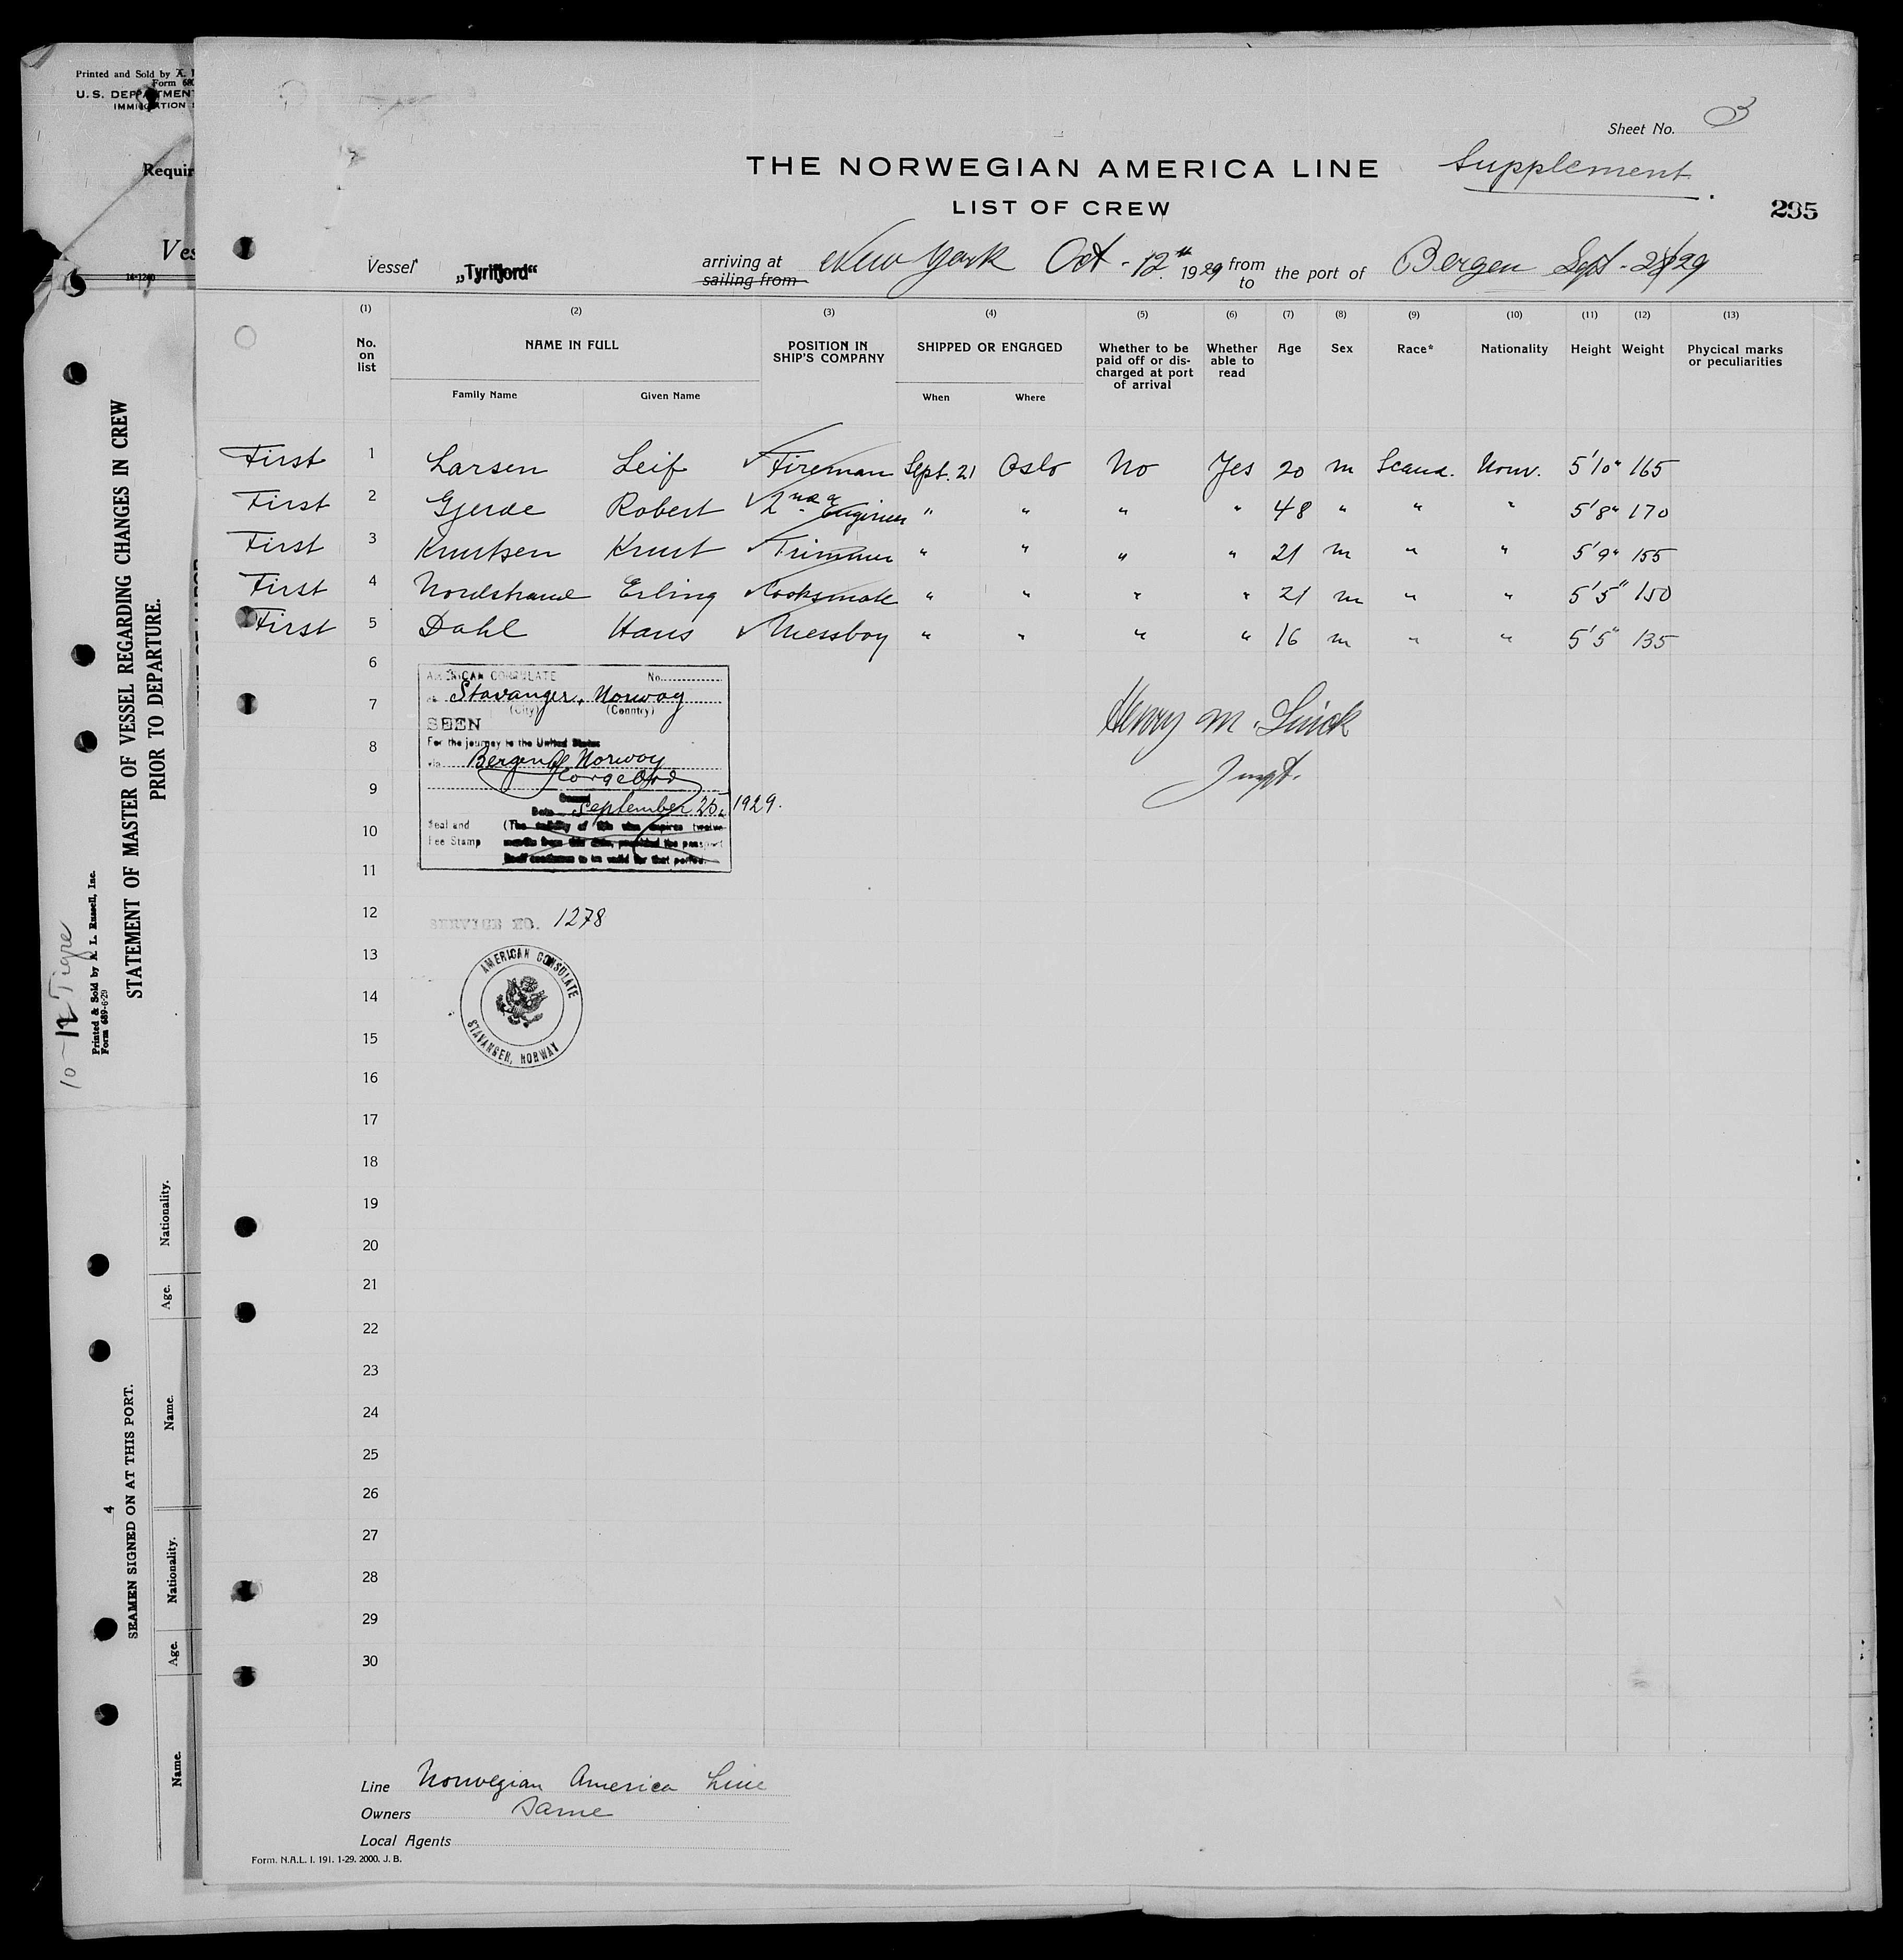 Printed and Sold by
Form 680
U. S. DEPARTMENT
IMMIGRATION
Requir
Ves
14-1240
STATEMENT OF MASTER OF VESSEL REGARDING CHANGES IN CREW
PRIOR TO DEPARTURE.
Printed & Sold by A. L. Russell, Inc.
Form 689-6-29
10-12 Tigre
4
SEAMEN SIGNED ON AT THIS PORT.
Name. Age. Nationality. Name. Age. Nationality.
Sheet No. 3
THE NORWEGIAN AMERICA LINE Supplement.
LIST OF CREW
295
Vessel „Tyrifjord“ arriving at sailing from New York Oct - 12th 1929 from to the port of Bergen Sept - 29
(1) (2) (3) (4) (5) (6) (7) (8) (9) (10) (11) (12) (13)
No. on list NAME IN FULL POSITION IN SHIP'S COMPANY SHIPPED OR ENGAGED Whether to be paid off or discharged at port of arrival Whether able to read Age Sex Race* Nationality Height Weight Phycical marks or peculiarities
Family Name Given Name When Where
First 1 Larsen Leif Fireman Sept. 21 Oslo No Yes 20 m Scand. Norw. 5'10" 165
First 2 Gjerde Robert 2nd Engineer " " " " 48 " " " 5'8" 170
First 3 Knutsen Knut Trimmer " " " " 21 m " " 5'9" 155
First 4 Nordstrand Erling Cooksmate " " " " 21 m " " 5'5" 150
First 5 Dahl Hans Messboy " " " " 16 m " " 5'5" 135
6
AMERICAN CONSULATE No.
at Stavanger, Norway
(City) (Country)
7
SEEN
For the journey to the United States
8
via Bergen, Norway
George Orr
9
Consul
Date September 25, 1929.
Seal and (The validity of this visa expires twelve
10
Fee Stamp months from this date, provided the passport
itself continues to be valid for that period.
11
Henry M. Linck
Inspt.
12
SERVICE NO. 1278
13
AMERICAN CONSULATE
STAVANGER, NORWAY
14
15
16
17
18
19
20
21
22
23
24
25
26
27
28
29
30
Line Norwegian America Line
Owners Same
Local Agents
Form. N.A.L. I. 191. 1-29. 2000. J. B.